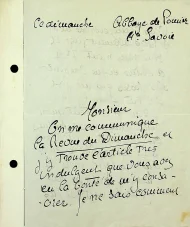 Ce dimanche Abbaye de Pomier
Hte Savoie
Monsieur
On me communique
la Revue du Dimanche et
j'y trouve l'article très
indulgent que vous avez
eu la bonté de m'y consa-
crer. Je ne sais comment